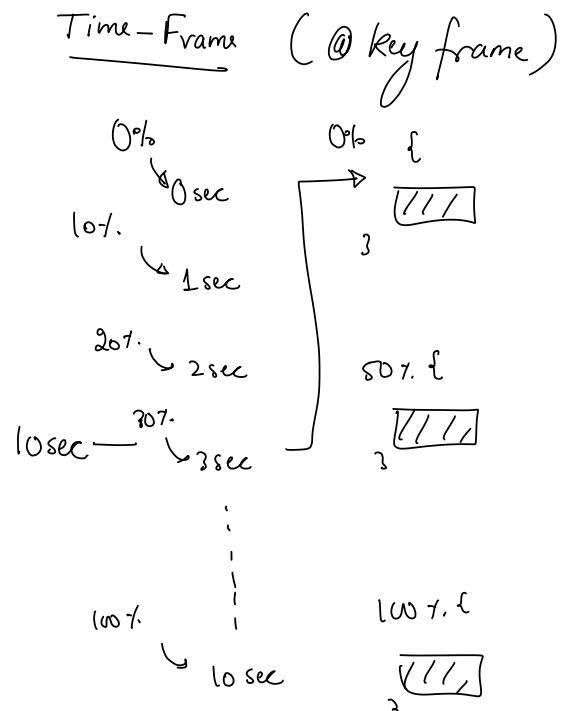 Time-Frame (@ key frame)
0%
0 sec
10%
1 sec
20%
2 sec
10 sec 30%
3 sec
100%
10 sec
0% {
}
50% {
}
100% {
}